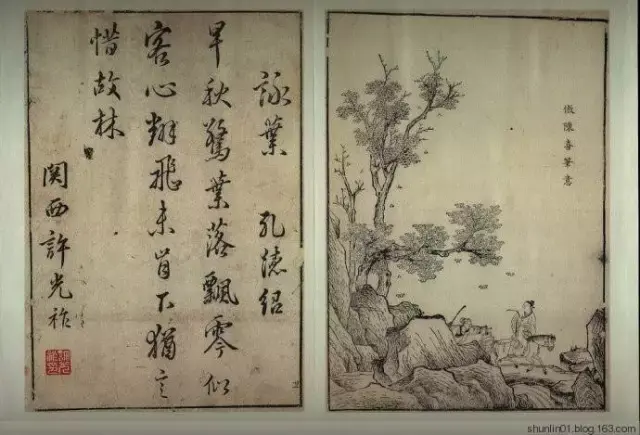 倣陳喜筆意
詠葉 孔德紹
早秋驚葉落飄零似
客心翻飛未肯下猶言
惜故林
関西許光祚
shunlin01.blog.163.com